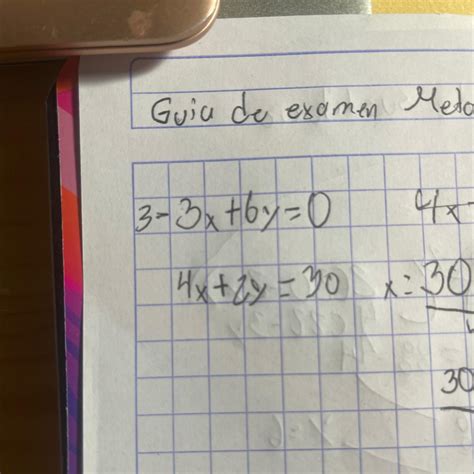 Guia de examen
3- 3x+6y=0 4x-
4x+2y=30 x=30
30